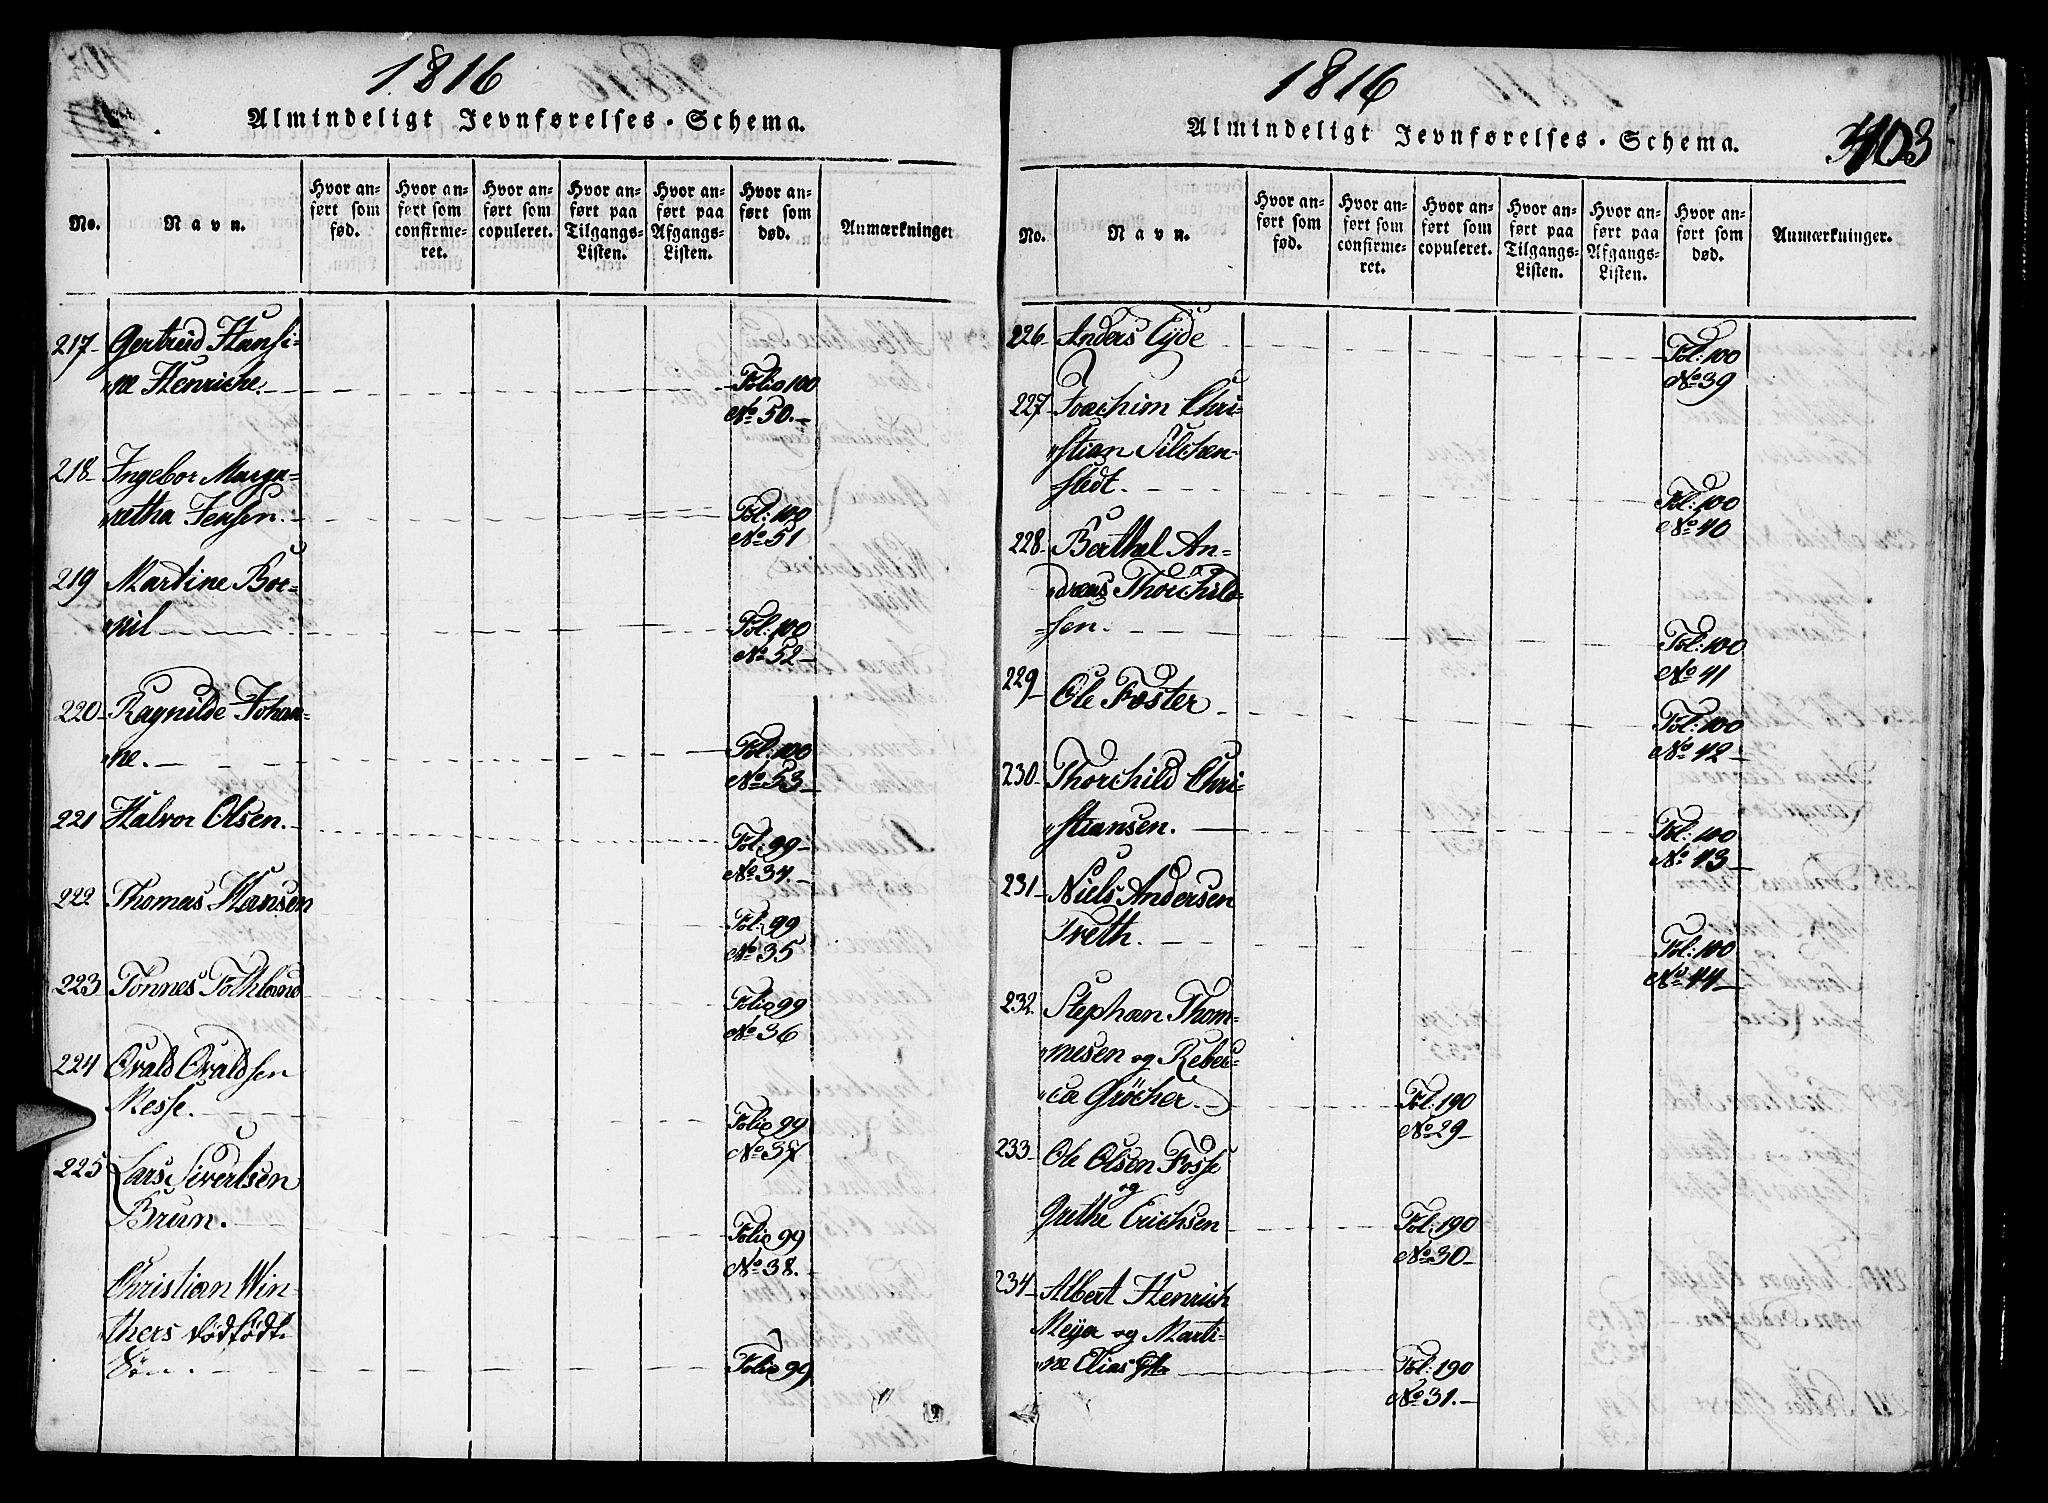 1816
Almindeligt Jevnførelses-Schema.
No.
Navn.
Hvor anført som fød.
Hvor anført som confirmeret.
Hvor anført som copuleret.
Hvor anført paa Tilgangs-Listen.
Hvor anført paa Afgangs-Listen.
Hvor anført som død.
Anmærkninger
217 Gertrud Hansi-
ne Henriche. Folio 100
No 50.
218 Ingebor Marga-
retha Jensen. Fol: 100
No 51
219 Martine Bor-
nil Fol: 100
No 52
220 Ragnilde Johan-
ne. Fol: 100
No 53
221 Halvor Olsen. Fol: 99
No 34.
222 Thomas Hansen Fol: 99
No 35
223 Tønnes Folkland Folio 99
No 36
224 Osvald Osvaldsen
Messe. Folio 99
No 37
225 Lars Sivertsen
Brun. Folio 99
No 38.
Christian Win-
thers dødfødt
Søn. Folio 99
1816
Almindeligt Jevnførelses-Schema.
403
No.
Navn.
Hvor anført som fød.
Hvor anført som confirmeret.
Hvor anført som copuleret.
Hvor anført paa Tilgangs-Listen.
Hvor anført paa Afgangs-Listen.
Hvor anført som død.
Anmærkninger.
226 Anders Eyde Fol: 100
No 39
227 Joachim Chri-
stian Silchen-
stedt. Fol: 100
No 40
228 Berthel An-
dreas Thorchild-
sen. Fol: 100
No 41
229 Ole Foster Fol: 100
No 42
230 Thorchild Chri-
stiansen. Fol: 100
No 43
231 Niels Andersen
Treth. Fol: 100
No 44
232 Stephan Thom-
mesen og Rebec-
ca Gröcher. Fol: 190
No 29
233 Ole Olsen Fosse
og
Grethe Erichsen Fol: 190
No 30
234 Albert Henrich
Meyer og Marti-
ne Elias Fol: 190
No 31.